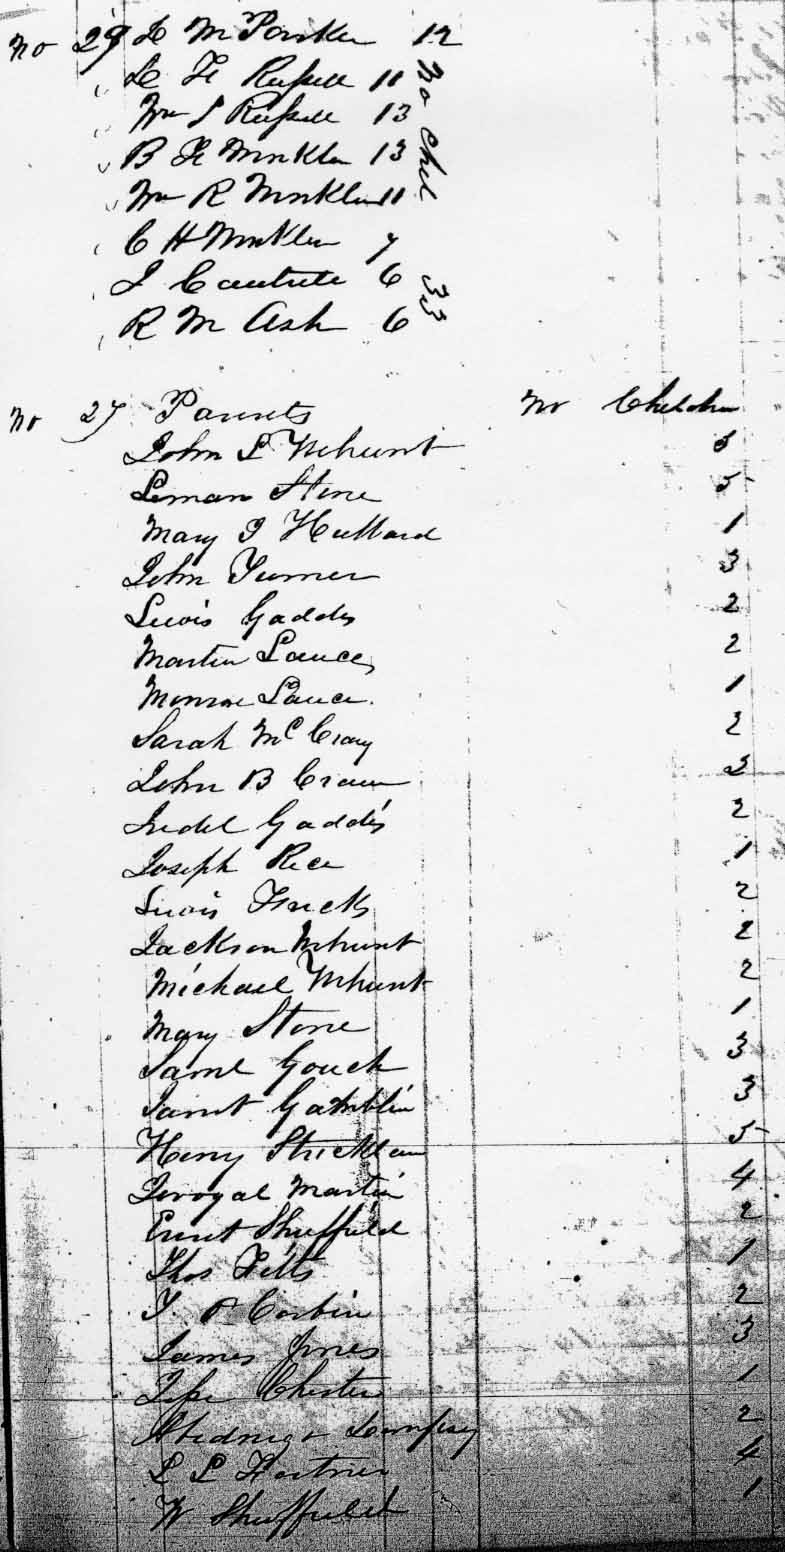 No 29 L M Parker 12
L H Russell 11
Wm J Russell 13
B F Winkler 13
Wm R Winkler 11
C H Winkler 7
J Cantrell 6
R M Ash 6
No Chil
33
No 27 Parents No Children
John L Mhunt
Leman Stone 5
Mary J Hubbard 1
John Turner 3
Lewis Gaddis 2
Martin Lance 2
Monroe Lance 1
Sarah McCrary 2
John B Crain
Gaddis 2
Joseph Rice 1
Lewis Fricks 2
Jackson Mhunt 2
Michael Mhunt 2
Mary Stone 1
Saml Gouch 3
Gamblin 3
Henry Stricklan 5
Martin 4
Sheffield 2
Thos Fitts 1
Corbin 2
James Jones 3
Jesse Chester 1
Abednego Dempsey 2
L L 4
W Sheffield 1